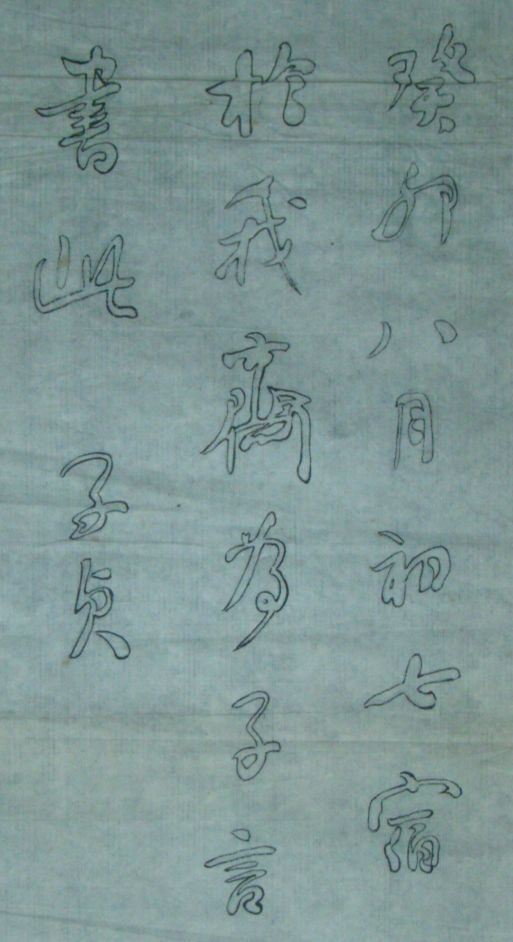 癸卯八月初七宿
於我齋為子言
書此 子貞